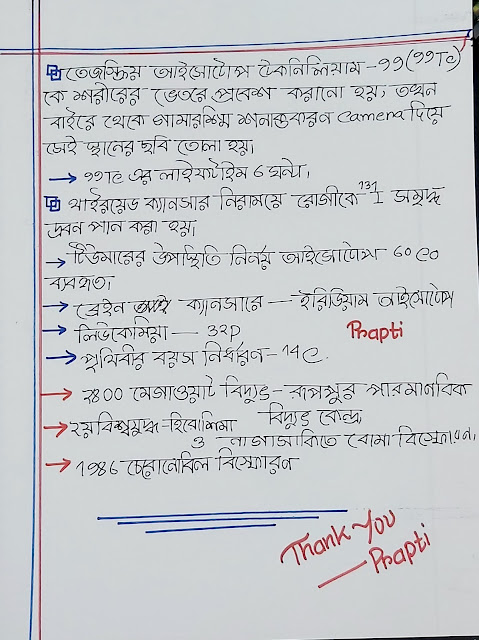 তেজস্ক্রিয় আইসোটোপ টেকনিশিয়াম-99 (99Tc)
কে শরীরের ভেতরে প্রবেশ করানো হয়, তখন
বাইরে থেকে গামারশ্মি শনাক্তকরন camera দিয়ে
সেই স্থানের ছবি তোলা হয়।
→ 99Tc এর লাইফটাইম ৬ ঘন্টা।
থাইরয়েড ক্যানসার নিরাময়ে রোগীকে ¹³¹I সমৃদ্ধ
দ্রবন পান করা হয়।
→ টিউমারের উপস্থিতি নির্নয় আইসোটোপ 60 co
ব্যবহৃত।
→ ব্রেইন ক্যানসারে — ইরিডিয়াম আইসোটোপ
→ লিউকেমিয়া — 32p
Prapti
→ পৃথিবীর বয়স নির্ধারন - 14c.
→ ২৪০০ মেগাওয়াট বিদ্যুৎ - রূপপুর পারমানবিক
বিদ্যুৎ কেন্দ্র
→ ২য় বিশ্বযুদ্ধ - হিরোশিমা
ও নাগাসাকিতে বোমা বিস্ফোরন।
→ 1986 চেরোনোবিল বিস্ফোরন
Thank You
— Prapti